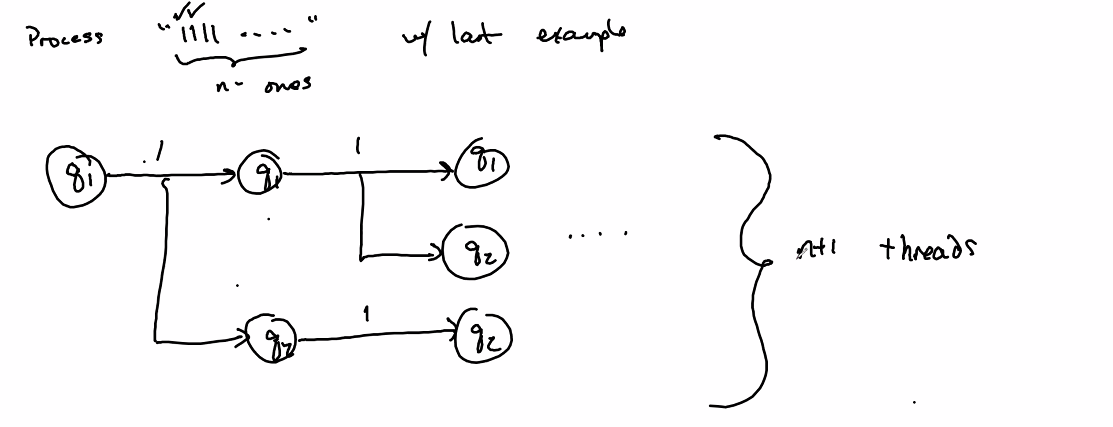 Process "1111 ...." w/ last example
n- ones
1 1
q1 q1 q1
q2
.... n+1 threads
1
q2 q2